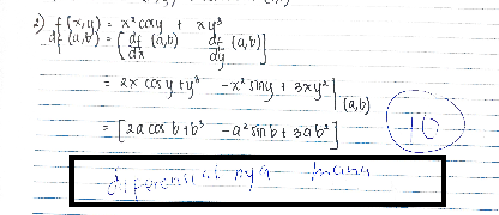 2) f(x,y) = x² cos y + xy³
df(a,b) = [df/dx (a,b) df/dy (a,b)]
= 2x cos y + y³ -x² sin y + 3xy² |(a,b)
= [2a cos b + b³ -a² sin b + 3ab²]
+10
diferensial nya mana